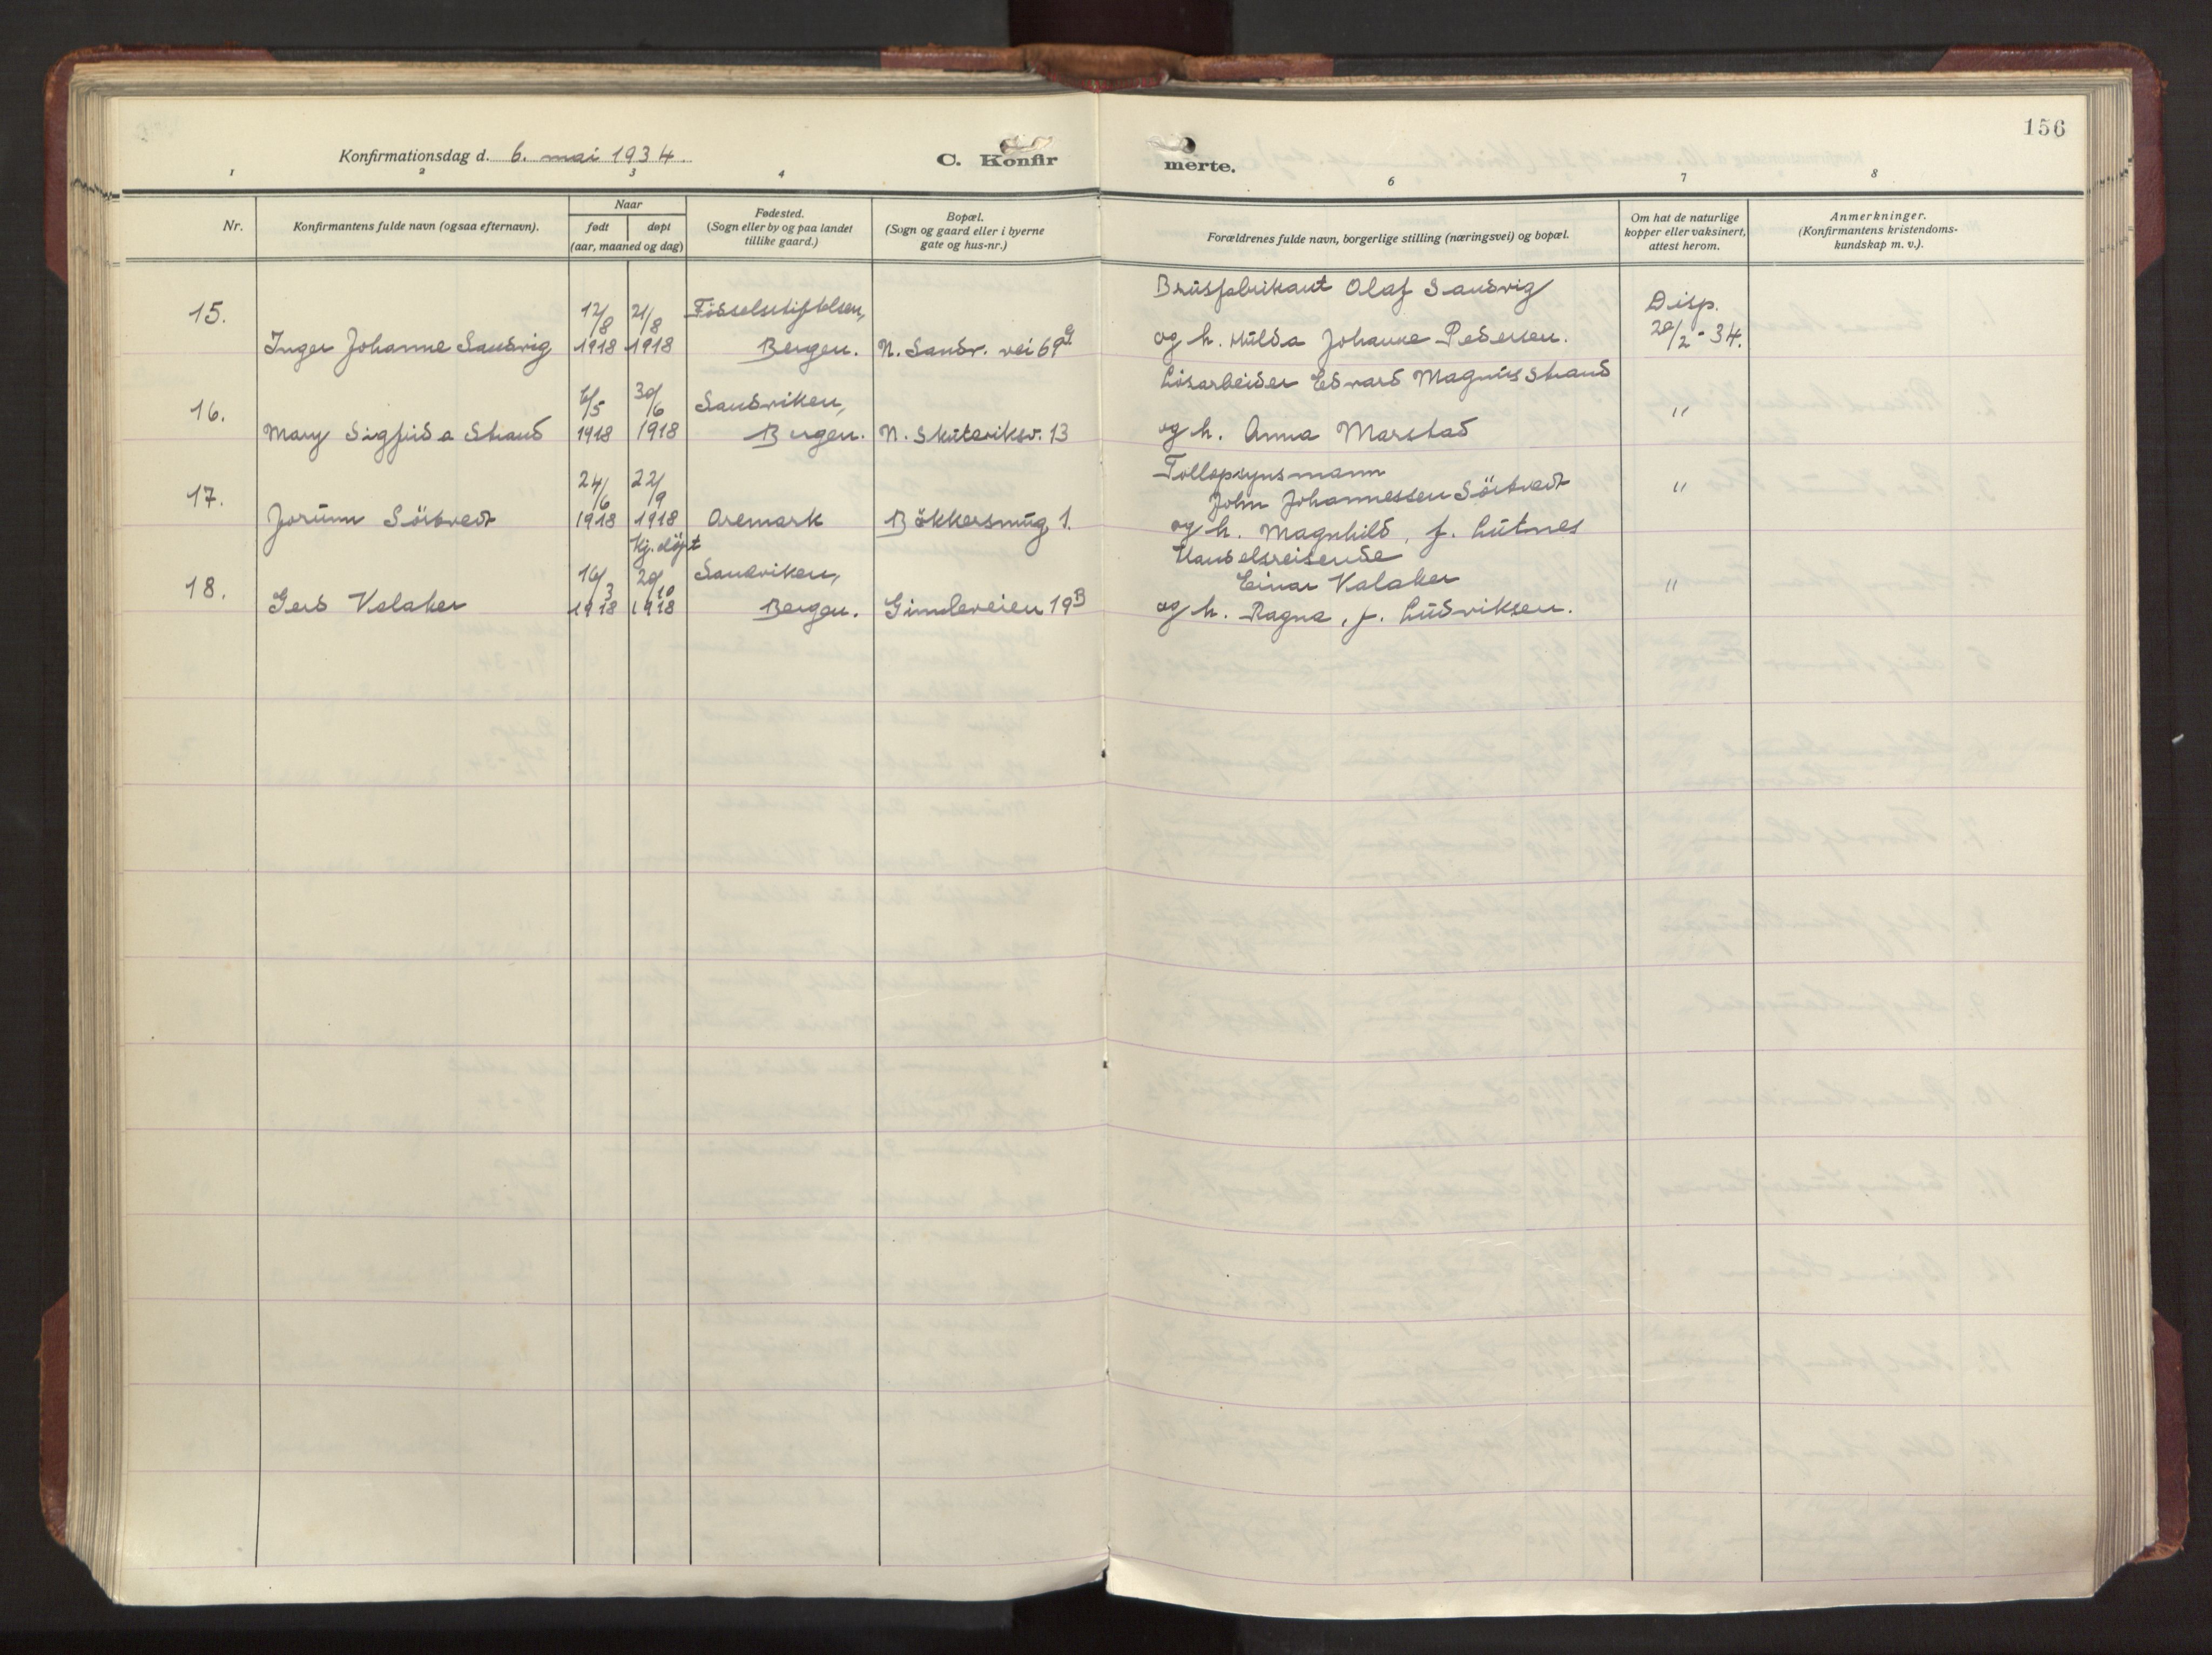 156
Konfirmationsdag d. 6. mai 1934.
C. Konfirmerte.
1 2 3 4 6 7 8
Nr.
Konfirmantens fulde navn (ogsaa efternavn).
Naar
født døpt
(aar, maaned og dag)
Fødested.
(Sogn eller by og paa landet
tillike gaard.)
Bopæl.
(Sogn og gaard eller i byerne
gate og hus-nr.)
Forældrenes fulde navn, borgerlige stilling (næringsvei) og bopæl.
Om hat de naturlige
kopper eller vaksinert,
attest herom.
Anmerkninger.
(Konfirmantens kristendoms-
kundskap m. v.).
Brusfabrikant Olaf Sandvig
15. 12/8 21/8 Fødselsstiftelsen, Disp.
Inger Johanne Sandvig 1918 1918 Bergen. N. Sandv. vei 69 og h. Hulda Johanne Pedersen. 20/2-34.
Løsarbeider Edvard Magnus Strand
16. 6/5 30/6 Sandviken, "
Mary Sigfrida Strand 1918 1918 Bergen. N. Skuteviksv. 13 og h. Anna Marstad
Tollopsynsmann
17. 24/6 22/9 John Johannessen Sörtvedt "
Jorunn Sörtvedt 1918 1918 Aremark Bökkersmug 1. og h. Magnhild, f. Lutnes
Hj. döpt Handelsreisende
18. 16/3 20/10 Sandviken, Einar Valaker "
Gerd Valaker 1918 1918 Bergen. Gimleveien 19B og h. Ragna, f. Ludviksen.